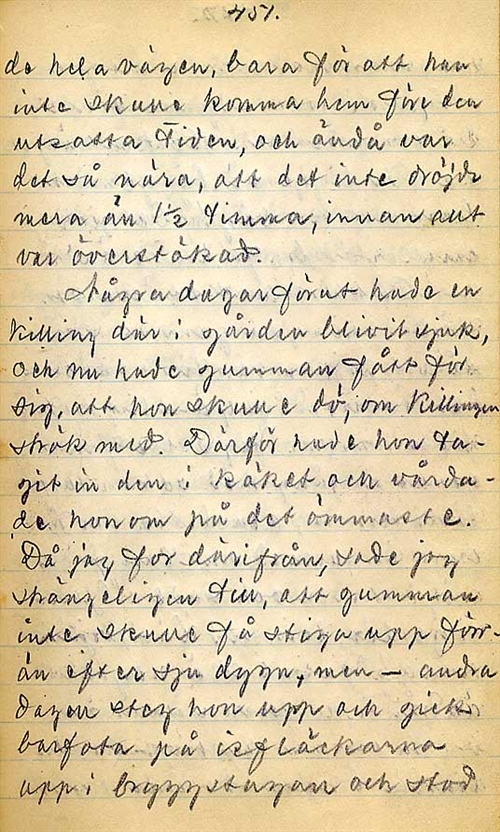 451.
de hela vägen, bara för att hon
inte skulle komma hem före den
utsatta tiden, och ändå var
det så nära, att det inte dröjde
mera än 1½ timma, innan allt
var överstökad.
Några dagar förut hade en
killing där i gården blivit sjuk,
och nu hade gumman fått för
sig, att hon skulle dö, om killingen
strök med. Därför hade hon ta-
git in den i köket och vårda-
de honom på det ömmaste.
Då jag for därifrån, sade jag
strängeligen till, att gumman
inte skulle få stiga upp förr-
än efter sju dygn, men — andra
dagen steg hon upp och gick
barfota på isfläckarna
upp i bryggstugan och stod